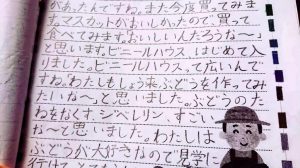 があったんですね。また今度買ってみま
す。マスカットがおいしかったので、買って
食べてみます。おいしいんだろうな〜
と思います。ビニールハウスはじめて入
りました。ビニールハウスって広いんで
すね。わたしもしょう来ぶどうを作ってみ
たいな〜。と思いました。ぶどうのた
ねをなくす、ジベレリン、すごい
な〜と思いました。わたしは
ぶどうが大好きなので見学に